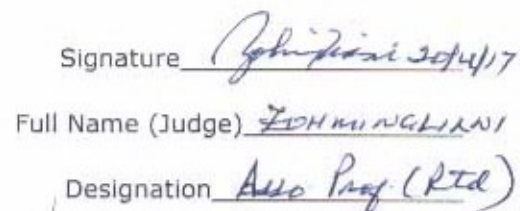 Signature 20/4/17
Full Name (Judge) ZOHMINGLIANI
Designation Asso Prof (Rtd)